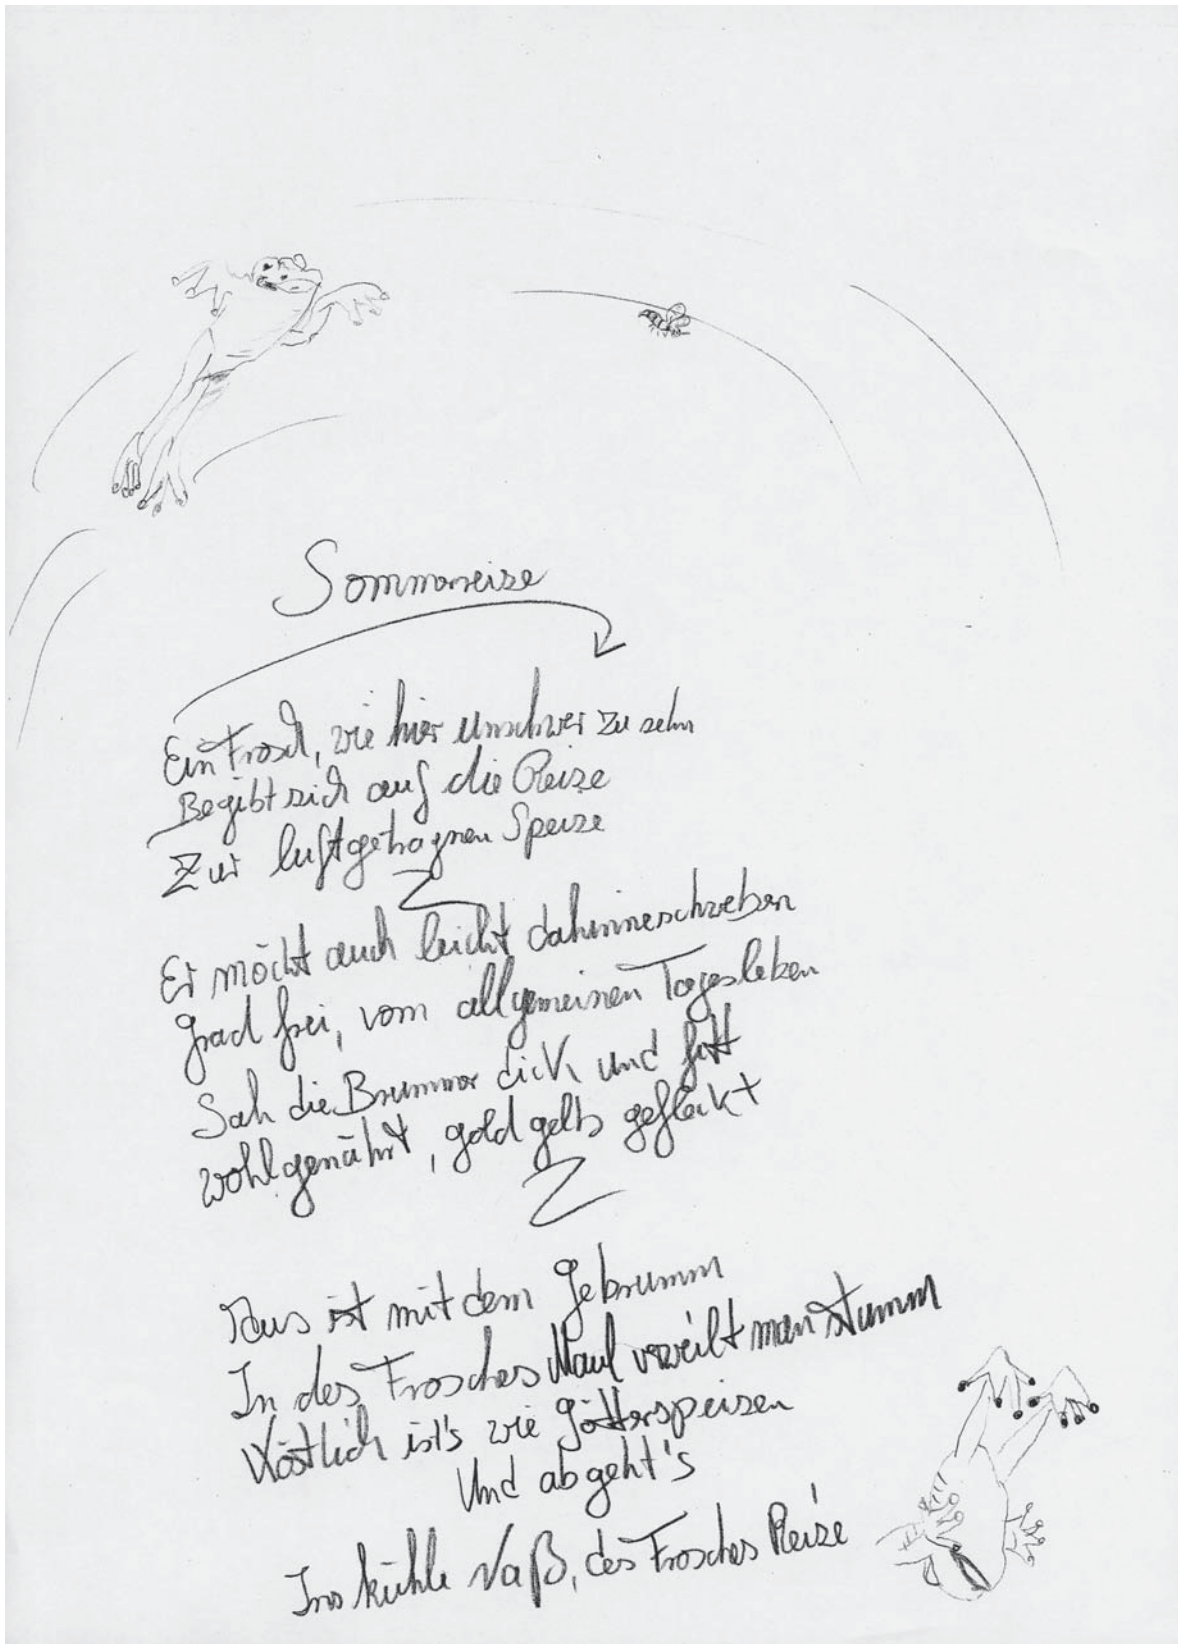 Sommerreise
Ein Frosch, wie hier unschwer zu sehn
Begibt sich auf die Reise
Zur luftgetragnen Speise
Er möcht auch leicht dahinneschweben
grad frei, vom allgemeinen Tagesleben
Sah die Brummer dick und fett
wohlgenährt, goldgelb gefleckt
Aus ist mit dem Gebrumm
In des Frosches Maul verweilt man stumm
Köstlich ist's wie Götterspeisen
Und ab geht's
Ins kühle Naß, des Frosches Reise